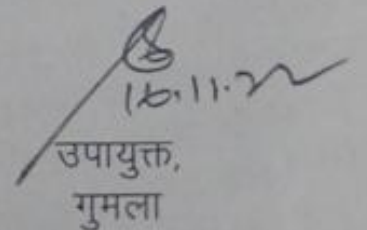 16.11.22
उपायुक्त,
गुमला